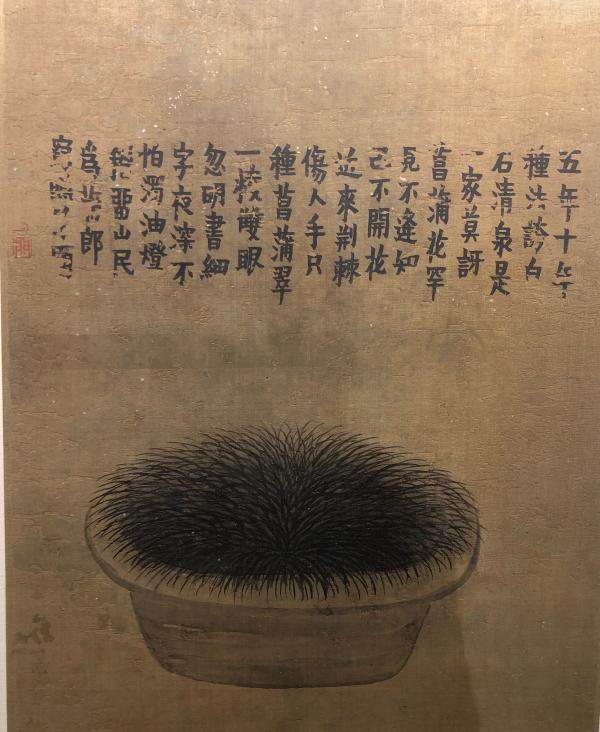 五年十年
種法誇白
石清泉是
一家莫訝
菖蒲花罕
見不逢知
己不開花
近來荊棘
傷人手只
種菖蒲翠
一眼
忽明書細
字夜深不
怕濁油燈
留山民
郎